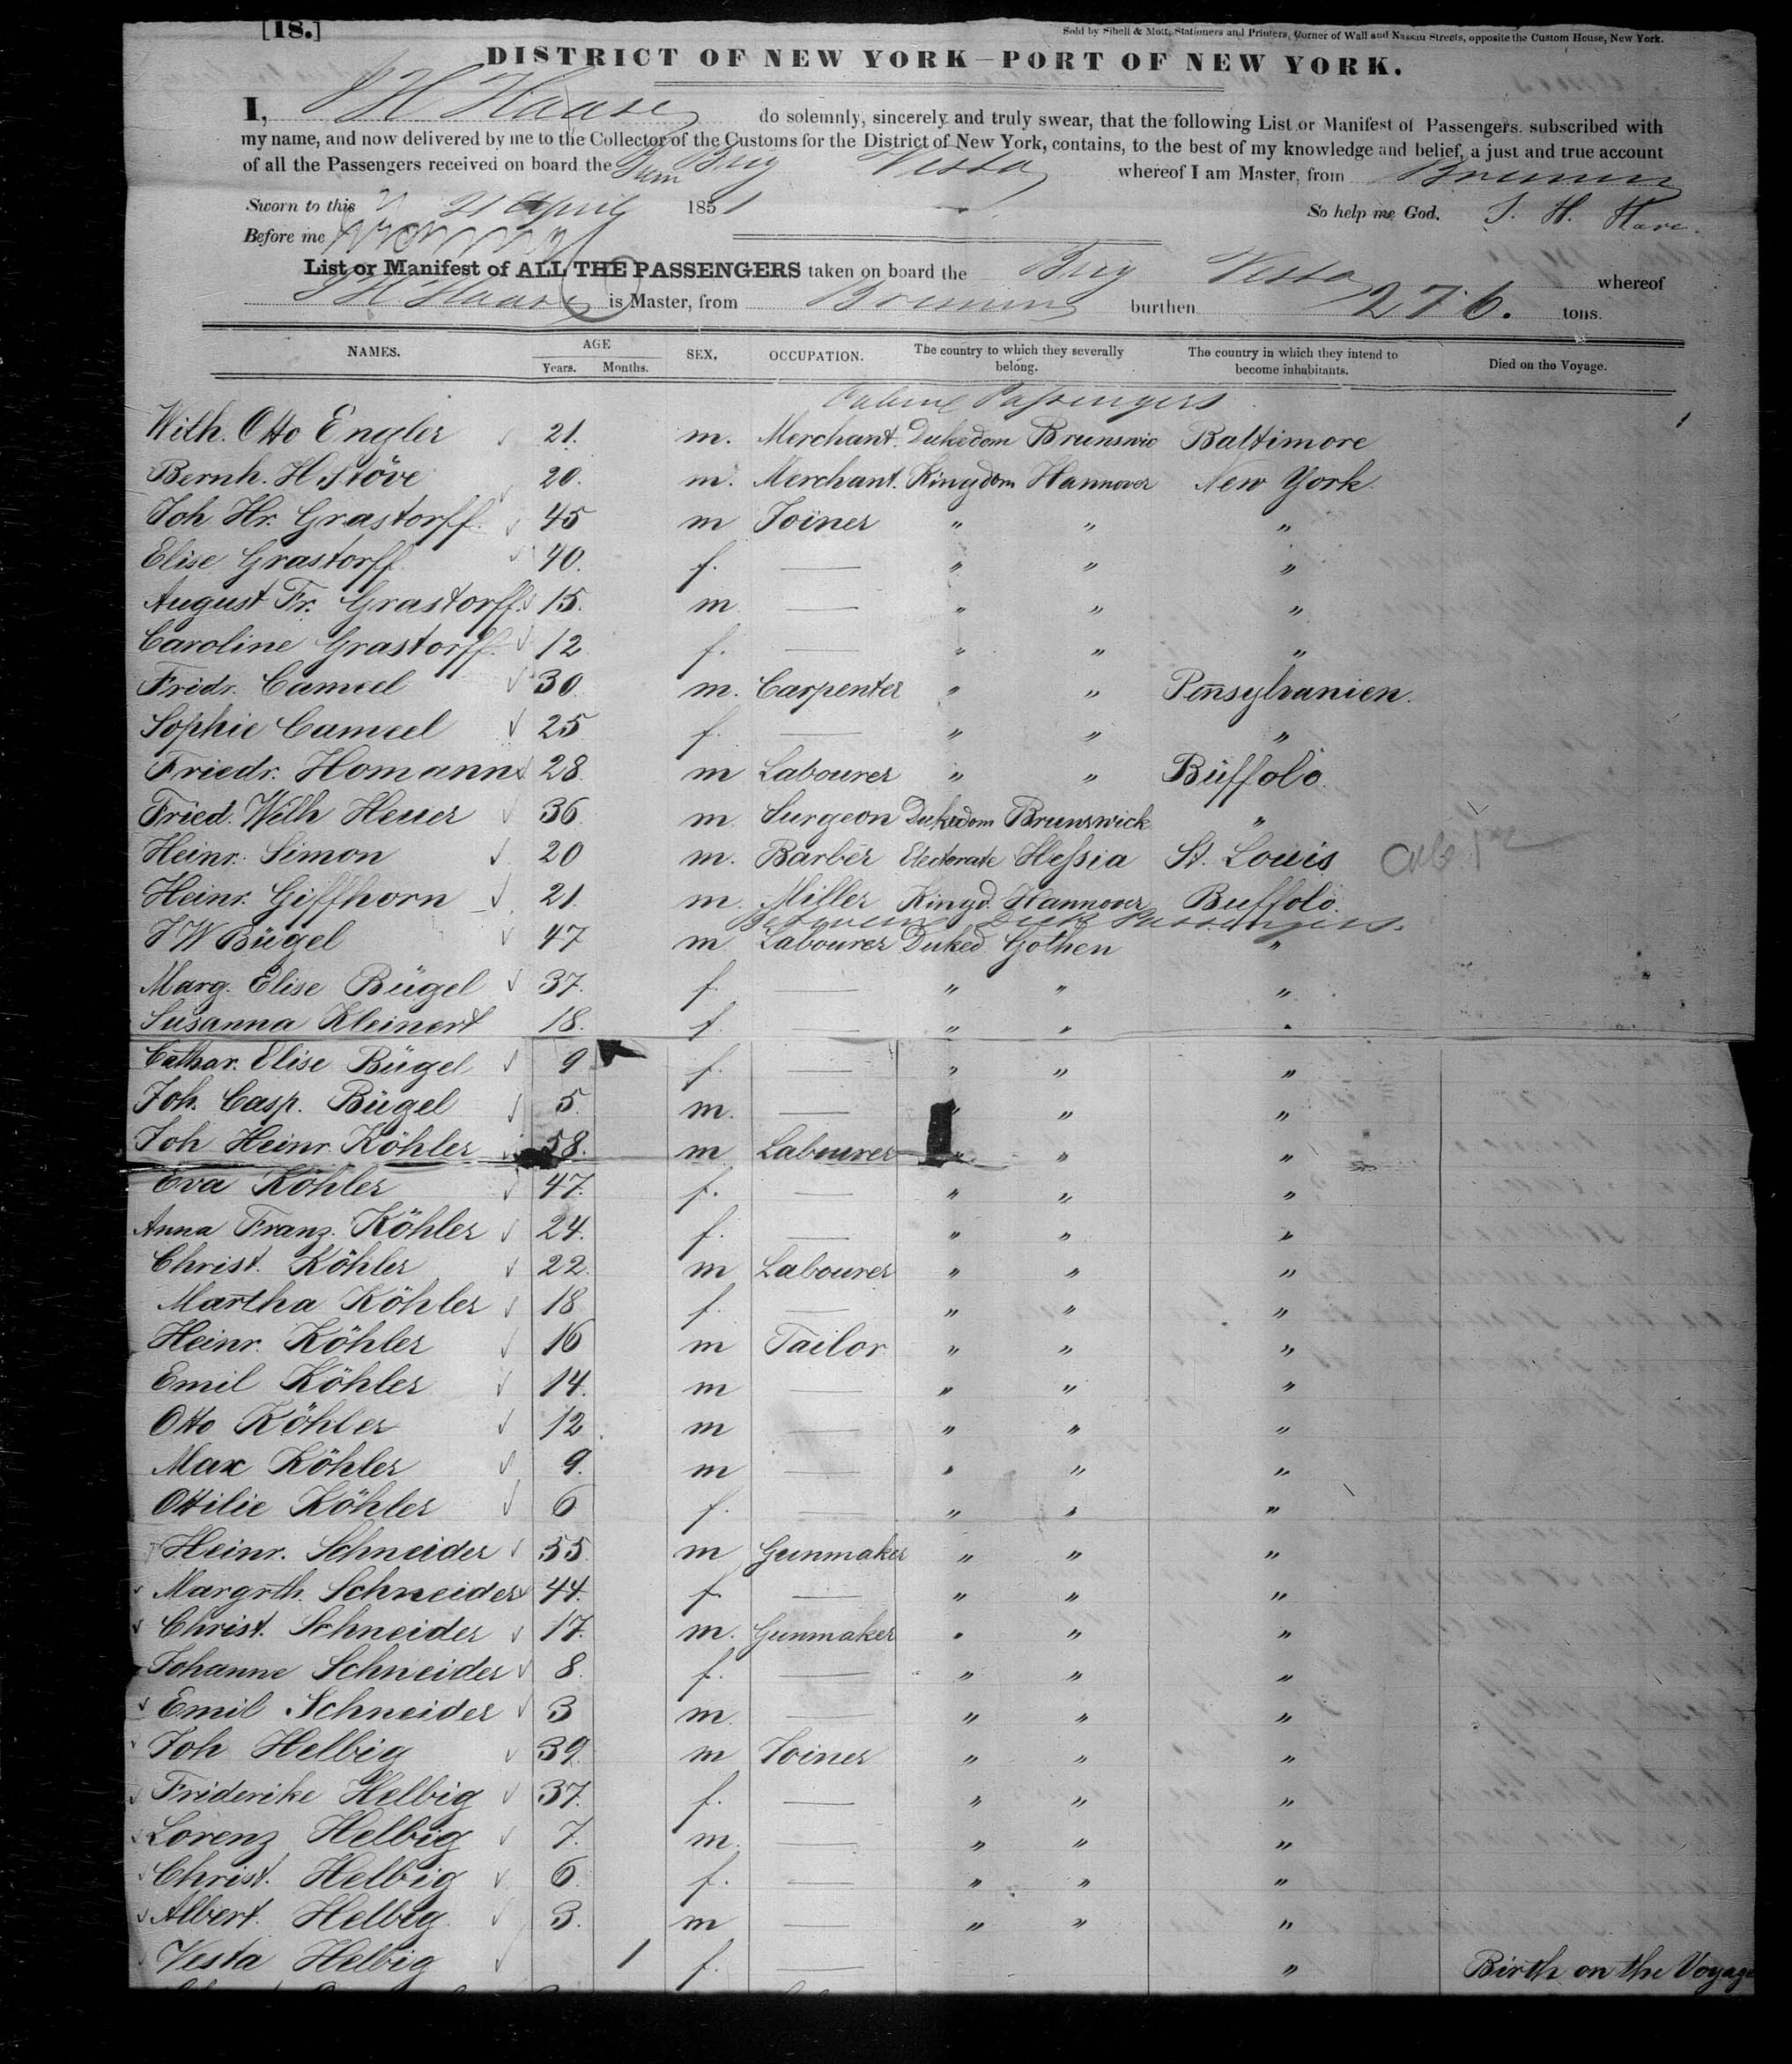 [18.]
Sold by Sibell & Mott, Stationers and Printers, Corner of Wall and Nassau Streets, opposite the Custom House, New York.
DISTRICT OF NEW YORK—PORT OF NEW YORK.
I, J H Haase do solemnly, sincerely and truly swear, that the following List or Manifest of Passengers, subscribed with
my name, and now delivered by me to the Collector of the Customs for the District of New York, contains, to the best of my knowledge and belief, a just and true account
of all the Passengers received on board the Brem Brig Vesta whereof I am Master, from Bremen
Sworn to this 21 April 1851 So help me God. J. H. Haase
Before me
List or Manifest of ALL THE PASSENGERS taken on board the Brig Vesta whereof
J H Haase is Master, from Bremen burthen 276. tons.
NAMES. AGE Years. Months. SEX. OCCUPATION. The country to which they severally belong. The country in which they intend to become inhabitants. Died on the Voyage.
Cabine Passengers
Wilh. Otto Engler 21. m. Merchant Dukedom Brunswic Baltimore
Bernh. H Stöve 20. m. Merchant. Kingdom Hannover New York
Joh Hr. Grastorff. 45 m Joiner " " "
Elise Grastorff 40. f. — " " "
August Fr. Grastorff. 15. m — " " "
Caroline Grastorff. 12 f. — " " "
Fridr. Cameel 30. m. Carpenter " " Pennsylvanien.
Sophie Cameel 25 f. — " " "
Friedr. Homann 28. m Labourer " " Büffolo.
Fried. Wilh Heuer 36 m. Surgeon Dukedom Brunswick "
Heinr. Simon 20 m. Barber Electorate Hessia St. Louis
Heinr. Giffhorn 21. m. Miller Kingd. Hannover Buffolo.
Between Deck Passengers.
J W Bügel 47 m Labourer Duked Gothen "
Marg. Elise Bügel 37. f. — " " "
Susanna Kleinert 18. f. — " " "
Cathar. Elise Bügel 9 f. — " " "
Joh. Casp. Bügel 5. m. — " " "
Joh Heinr. Köhler 58. m Labourer " " "
Eva Köhler 47. f. — " " "
Anna Franz. Köhler 24. f. — " " "
Christ. Köhler 22. m Labourer " " "
Martha Köhler 18 f. — " " "
Heinr. Köhler 16 m Tailor " " "
Emil Köhler 14. m — " " "
Otto Köhler 12 m — " " "
Max Köhler 9. m — " " "
Ottilie Köhler 6 f. — " " "
Heinr. Schneider 55. m Gunmaker " " "
Margrth. Schneider 44. f. — " " "
Christ. Schneider 17. m. Gunmaker " " "
Johanne Schneider 8. f. — " " "
Emil Schneider 3 m. — " " "
Joh Helbig 39. m Joiner " " "
Friderike Helbig 37. f. — " " "
Lorenz Helbig 7. m. — " " "
Christ. Helbig 6. f. — " " "
Albert. Helbig 3. m — " " "
Vesta Helbig 1 f. — " Birth on the Voyage